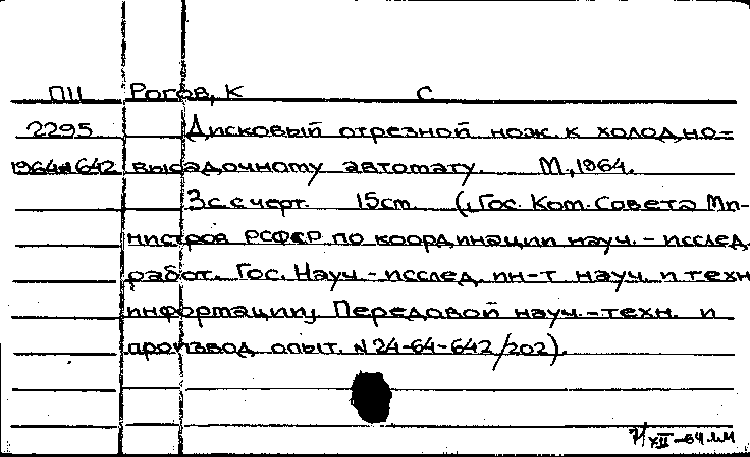 ПII Рогов, К С
2295 Дисковый отрезной нож к холодно-
1964 642 высадочному автомату. М., 1964.
3с с черт. 15см. (Гос. Ком. Совета Ми-
нистров РСФСР по координации науч.-исслед.
работ. Гос. Науч.-исслед. ин-т науч. и техн
информации, Передовой науч.-техн. и
производ опыт. N 24-64-642/202).
7/XII-64